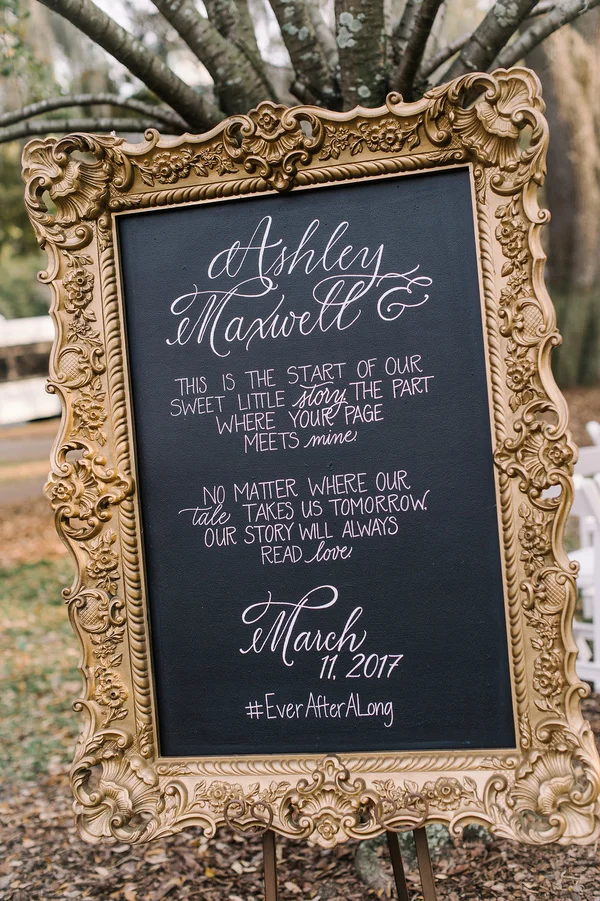 Ashley
Maxwell &
THIS IS THE START OF OUR
SWEET LITTLE story THE PART
WHERE YOUR PAGE
MEETS mine
NO MATTER WHERE OUR
tale TAKES US TOMORROW.
OUR STORY WILL ALWAYS
READ love
March
11, 2017
#EverAfterALong